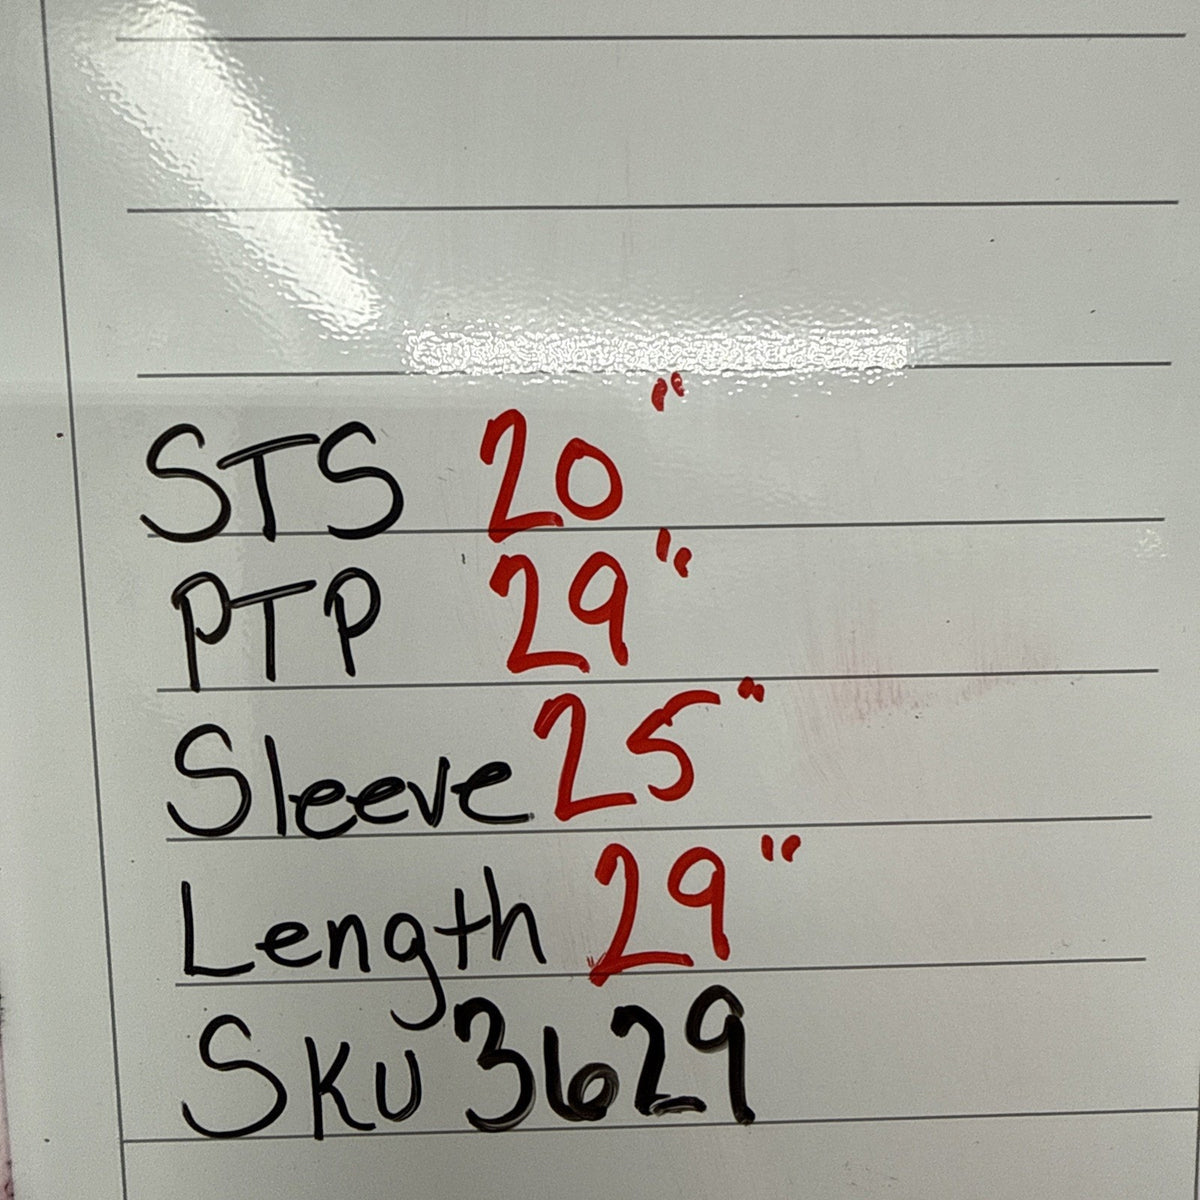 STS 20"
PTP 29"
Sleeve 25"
Length 29"
SKU 3629